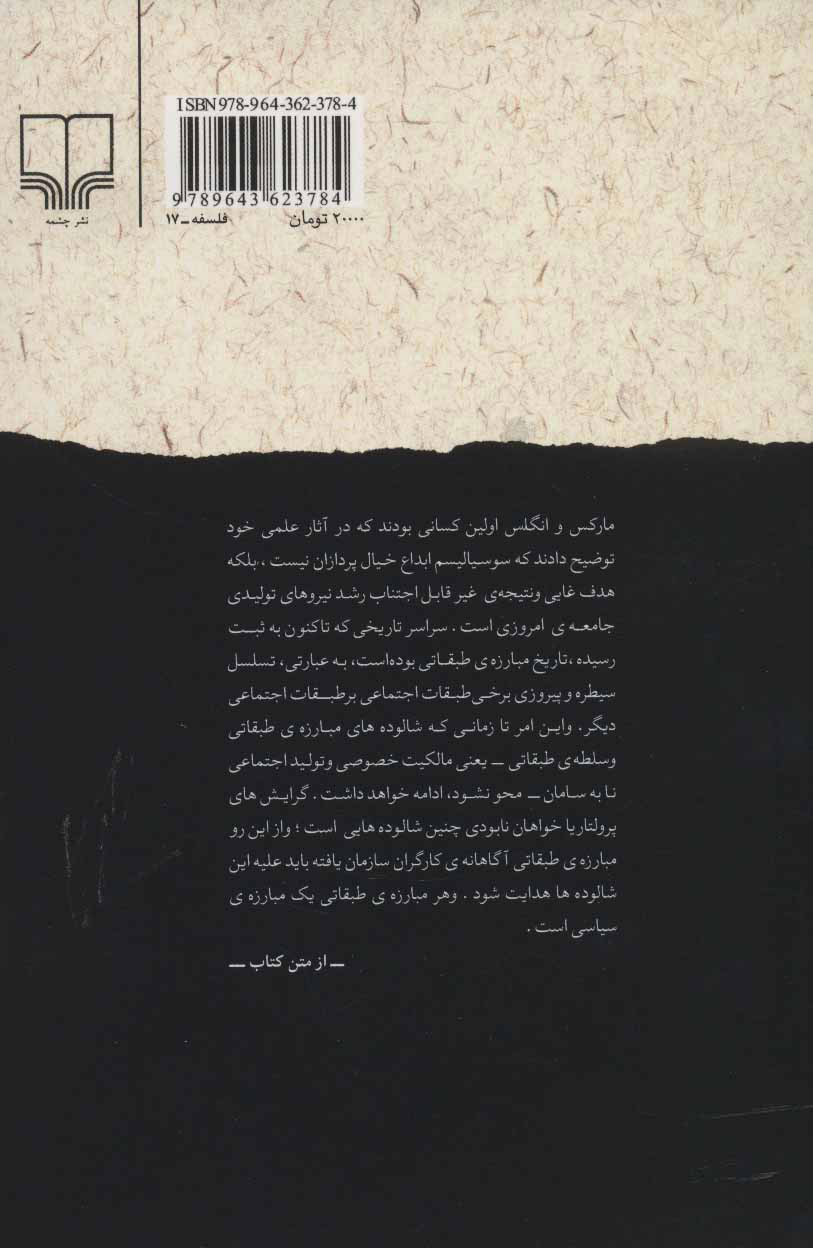 ISBN 978-964-362-378-4
9 789643 623784
۲۰۰۰۰ تومان
فلسفه ــ ۱۷
نشر چشمه
مارکس و انگلس اولین کسانی بودند که در آثار علمی خود
توضیح دادند که سوسیالیسم ابداع خیال پردازان نیست ، بلکه
هدف غایی ونتیجه‌ی غیر قابل اجتناب رشد نیروهای تولیدی
جامعه ی امروزی است . سراسر تاریخی که تاکنون به ثبت
رسیده ،تاریخ مبارزه ی طبقاتی بوده‌است، به عبارتی، تسلسل
سیطره و پیروزی برخی طبقات اجتماعی بر طبقات اجتماعی
دیگر. واین امر تا زمانی که شالوده های مبارزه ی طبقاتی
وسلطه‌ی طبقاتی ــ یعنی مالکیت خصوصی وتولید اجتماعی
نا به سامان ــ محو نشود، ادامه خواهد داشت . گرایش های
پرولتاریا خواهان نابودی چنین شالوده هایی است ؛ واز این رو
مبارزه ی طبقاتی آگاهانه ی کارگران سازمان یافته باید علیه این
شالوده ها هدایت شود . وهر مبارزه ی طبقاتی یک مبارزه ی
سیاسی است .
ــ از متن کتاب ــ